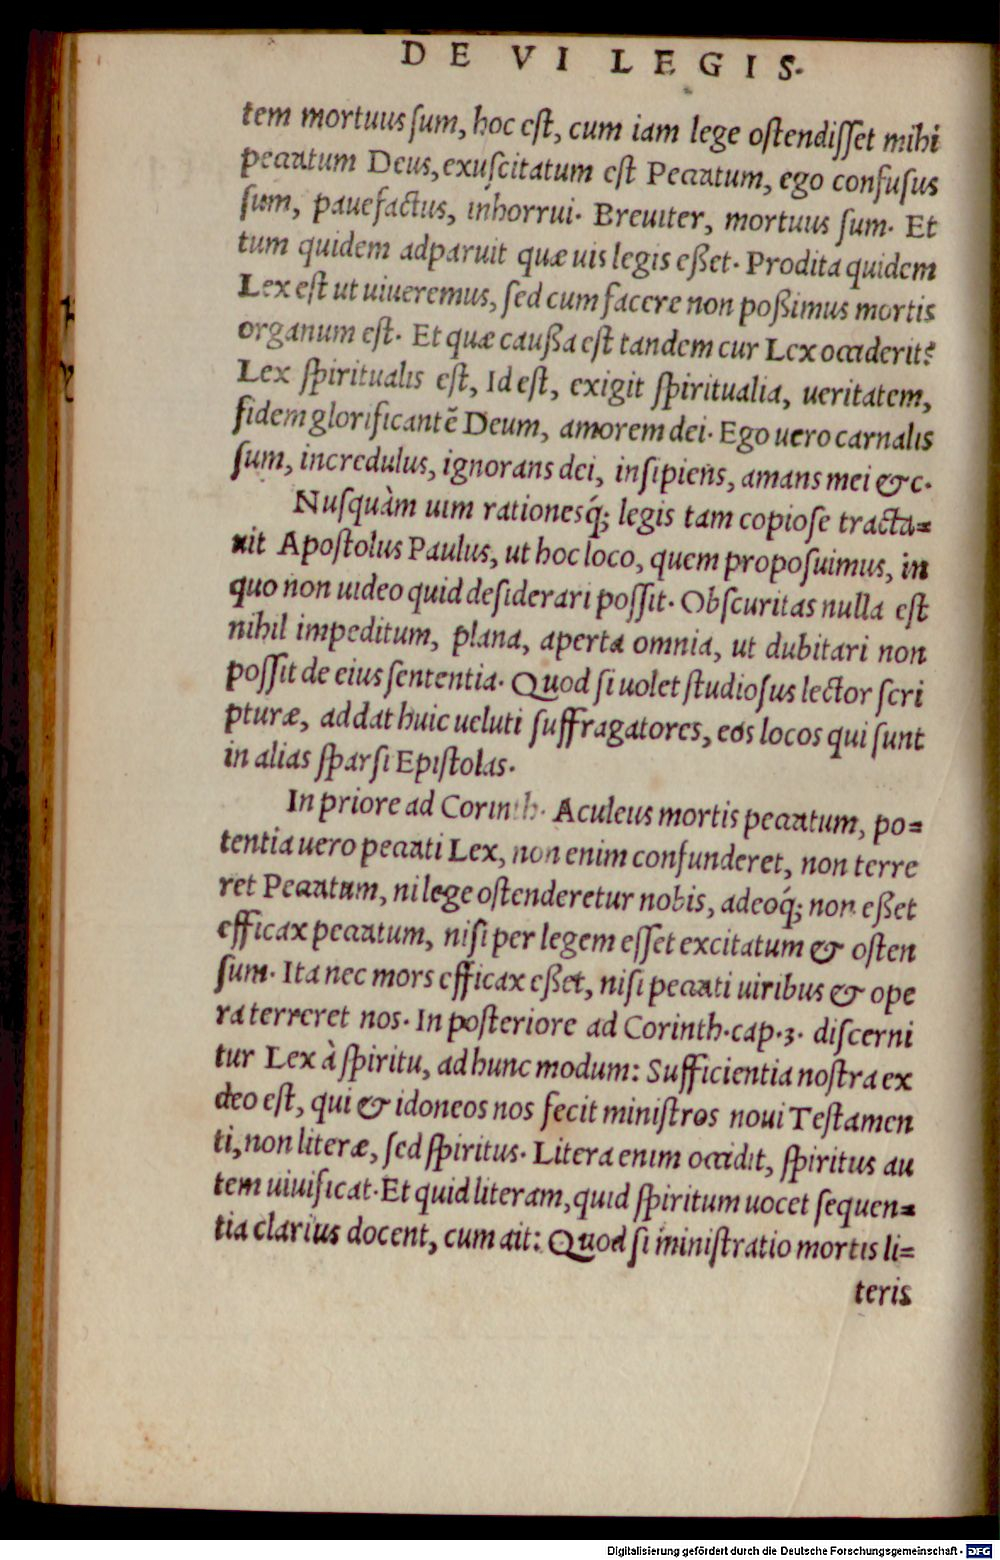 DE VI LEGIS.
tem mortuus ſum, hoc eſt, cum iam lege oſtendiſſet mihi
peccatum Deus, exuſcitatum eſt Peccatum, ego confuſus
ſum, pauefactus, inhorrui. Breuiter, mortuus ſum. Et
tum quidem adparuit quæ uis legis eßet. Prodita quidem
Lex eſt ut uiueremus, ſed cum facere non poßimus mortis
organum eſt. Et quæ cauſſa eſt tandem cur Lex occiderit?
Lex ſpiritualis eſt, Id eſt, exigit ſpiritualia, ueritatem,
fidem glorificantē Deum, amorem dei. Ego uero carnalis
ſum, incredulus, ignorans dei, inſipiens, amans mei &c.
Nuſquàm uim rationesq́; legis tam copioſe tracta=
uit Apoſtolus Paulus, ut hoc loco, quem propoſuimus, in
quo non uideo quid deſiderari poſſit. Obſcuritas nulla eſt
nihil impeditum, plana, aperta omnia, ut dubitari non
poſſit de eius ſententia. Quod ſi uolet ſtudioſus lector ſcri
pturæ, addat huic ueluti ſuffragatores, eos locos qui ſunt
in alias ſparſi Epiſtolas.
In priore ad Corinth. Aculeus mortis peccatum, po=
tentia uero peccati Lex, non enim confunderet, non terre
ret Peccatum, ni lege oſtenderetur nobis, adeoq́; non eßet
efficax peccatum, niſi per legem eſſet excitatum & oſten
ſum. Ita nec mors efficax eßet, niſi peccati uiribus & ope
ra terreret nos. In poſteriore ad Corinth. cap. 3. diſcerni
tur Lex à ſpiritu, ad hunc modum: Sufficientia noſtra ex
deo eſt, qui & idoneos nos fecit miniſtros noui Teſtamen
ti, non literæ, ſed ſpiritus. Litera enim occidit, ſpiritus au
tem uiuificat. Et quid literam, quid ſpiritum uocet ſequen=
tia clarius docent, cum ait: Quod ſi miniſtratio mortis li=
teris
Digitalisierung gefördert durch die Deutsche Forschungsgemeinschaft - DFG